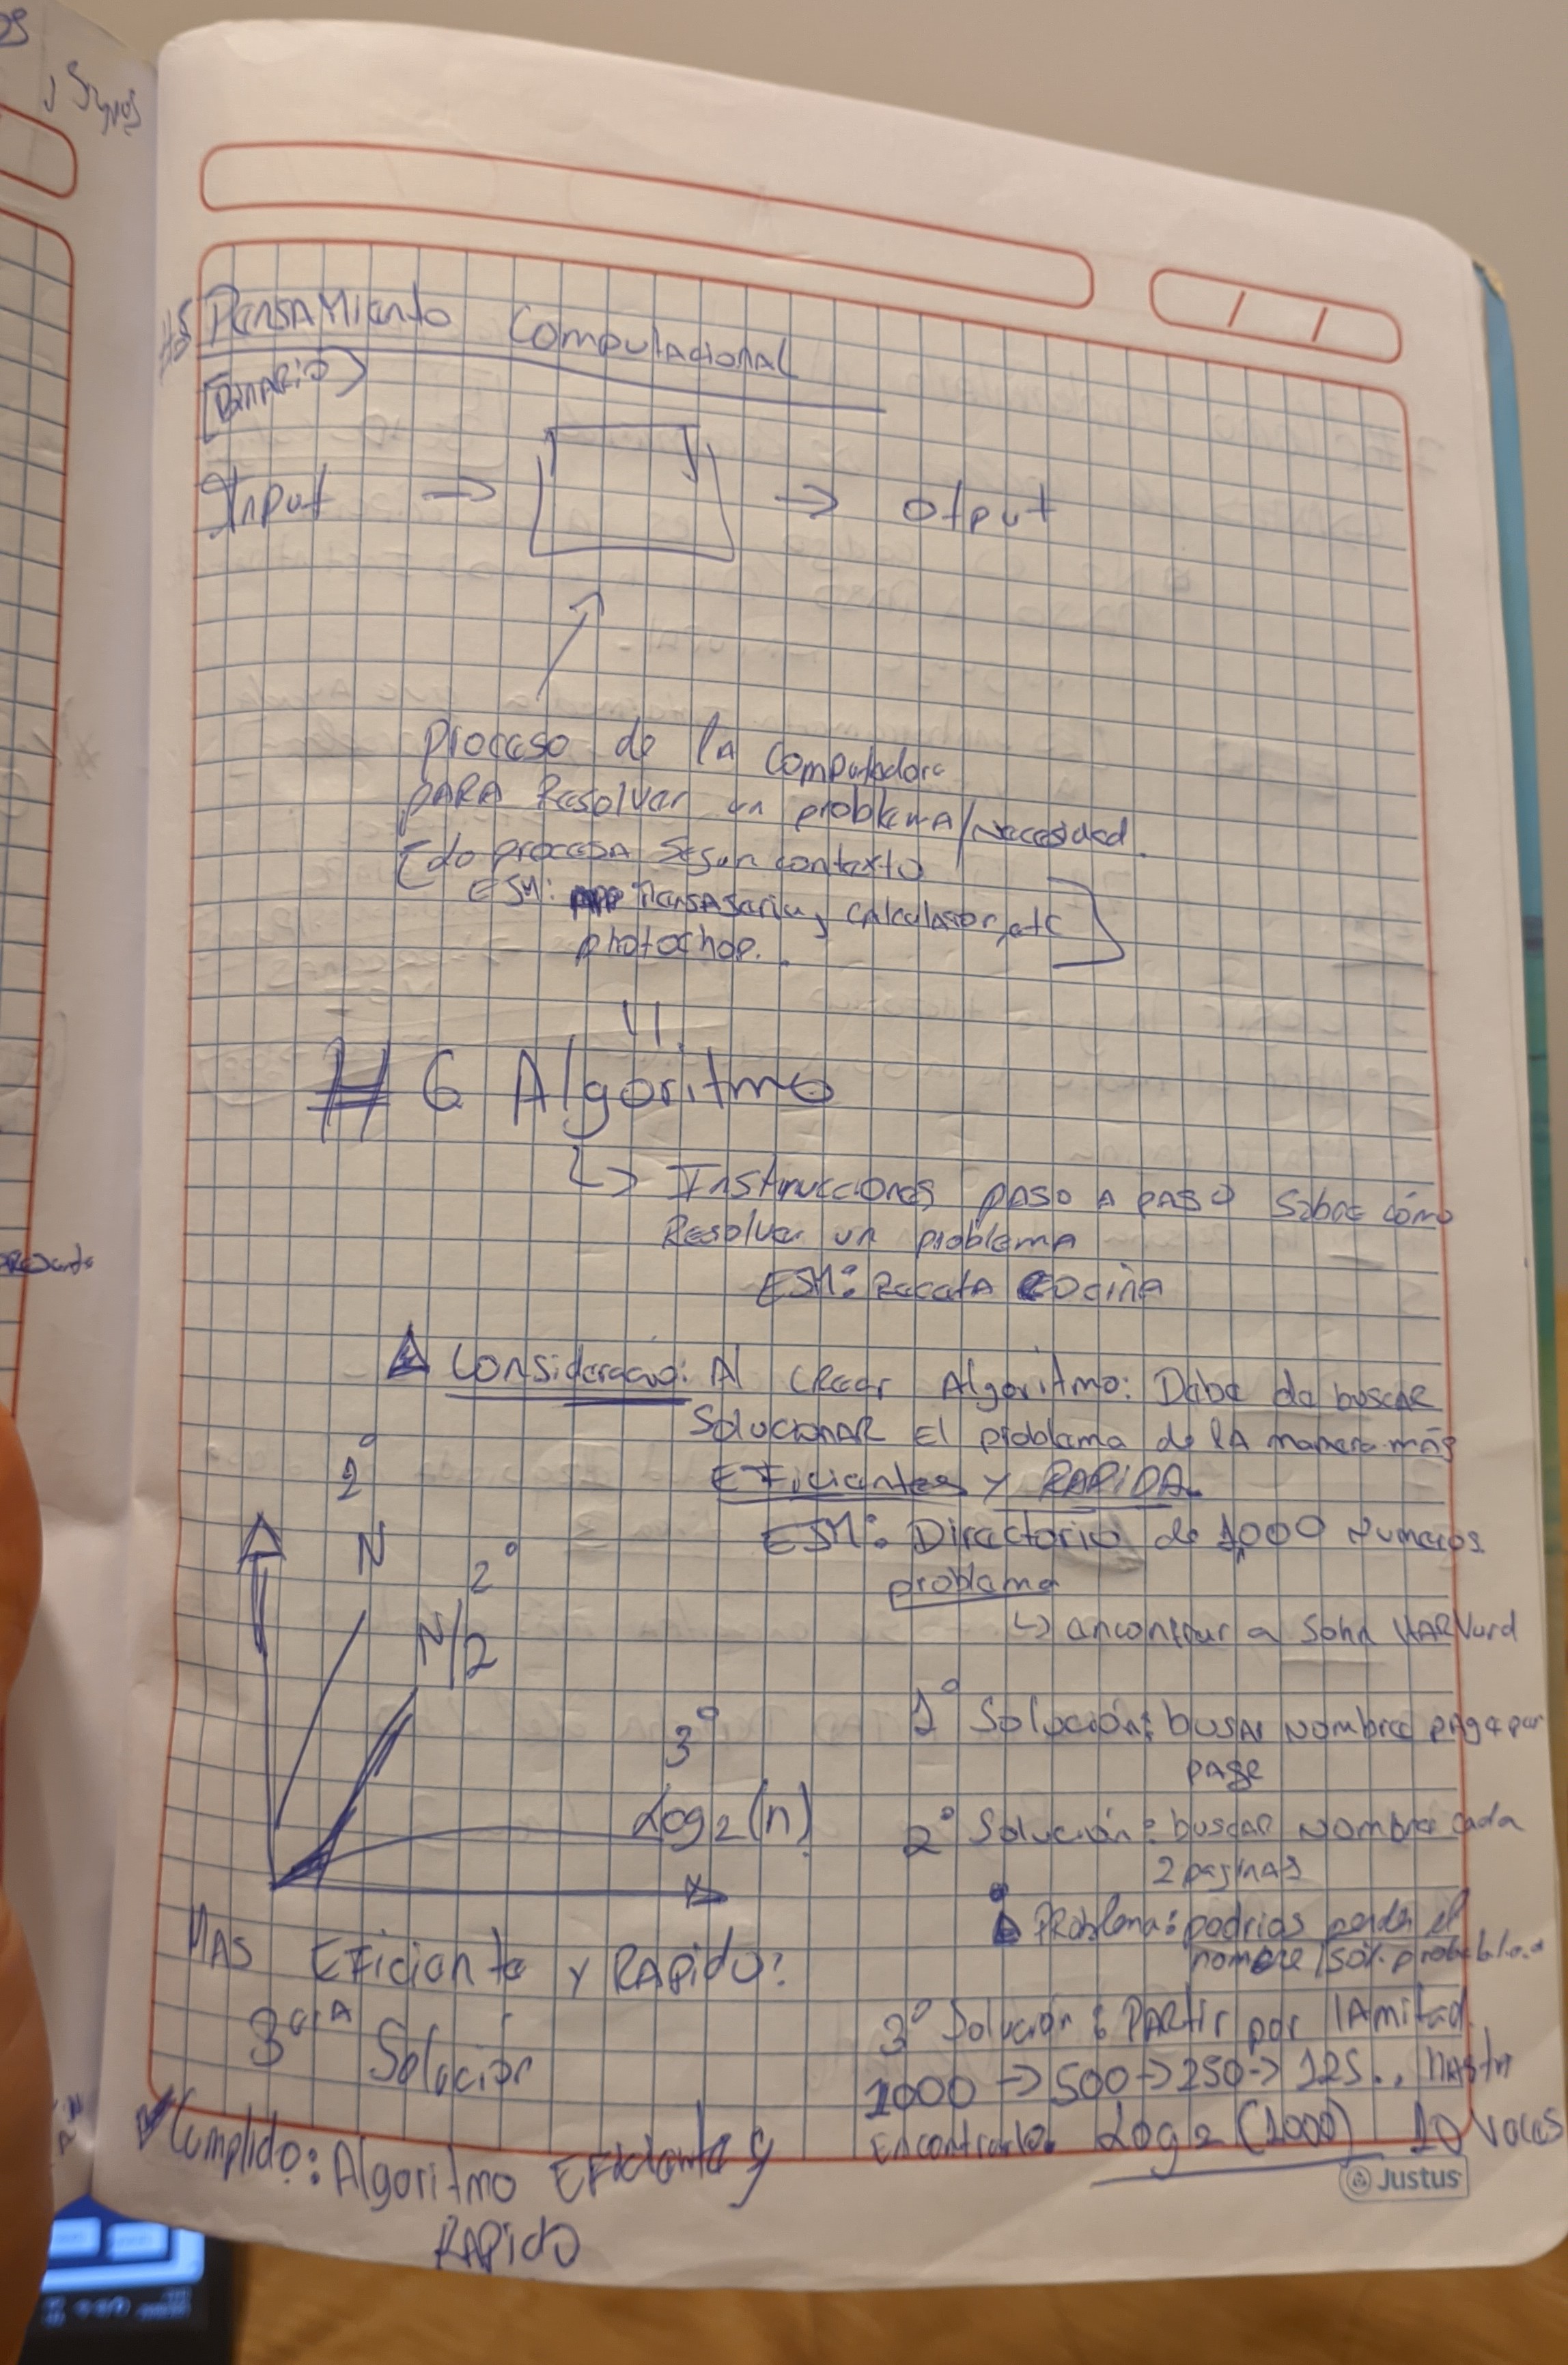 #5 Pensamiento Computacional
[Binario]
Input → → otput
proceso de la computadora
para Resolver un problema/necesidad.
[do procesa segun contexto
ESM: App mensajeria, calculador, etc
photochop. ]
# 6 Algoritmo
↳ Instrucciones paso a paso sobre cómo
Resolver un problema
ESM: Receta cocina
Consideracio: Al crear Algoritmo: Debe de buscar
Solucionar El problema de la manera más
Eficientes y RAPIDA.
ESM: Directorio de 1,000 numeros
problema
↳ encontrar a John HARVard
2°
N
2°
N/2
3°
Log2(n)
1° Solución: busar nombre page por
page
2° Solución: buscar nombre cada
2 paginas
Problema: podrias perder el
nombre
Mas Eficiente y Rapido?
3era Solución
3° Solución: Partir por la mitad
1000 → 500 → 250 → 125.. Hasta
Encontrarlo. Log2 (1000) 10 veces
Cumplido: Algoritmo Eficiente y
RAPido
Justus
J Signos